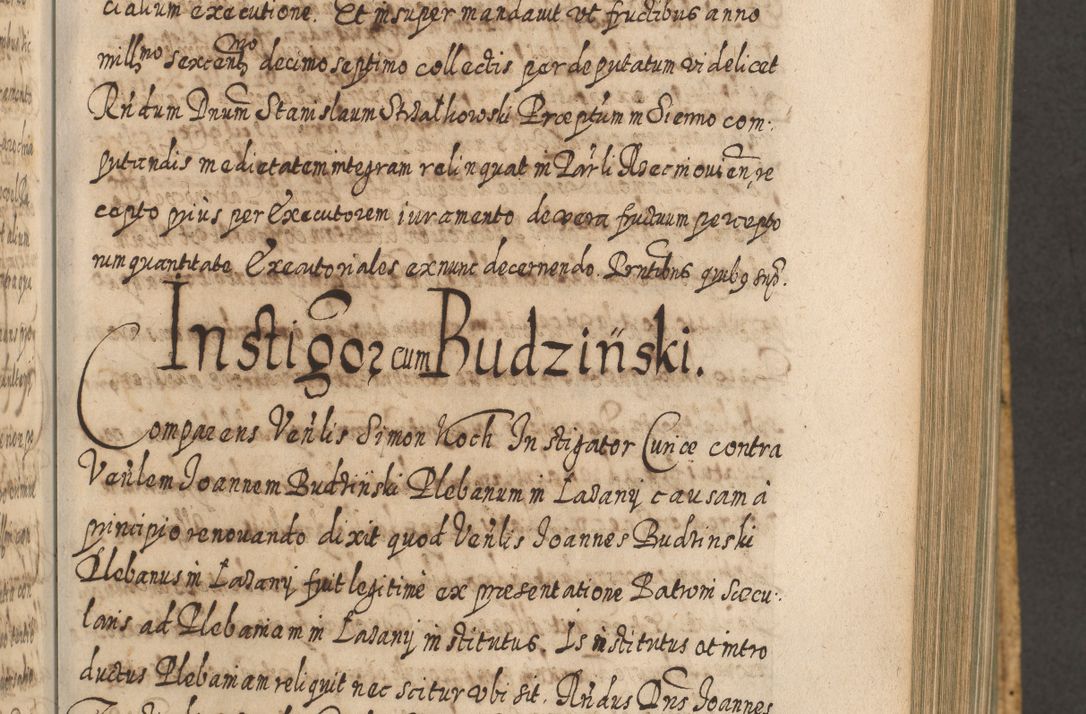 cialium executione. Et insuper mandavit ut fructibus anno
mill̃mo sexcent̃mo decimo septimo collectis per deputatum videlicet
Rñdum Dnum Stanislaum Strzałkowski Præptum in Sienno com:
putandis medietatem integram relinquat in
cepto prius per Executorem iuramento de vera fructuum percepto
rum quantitate Executoriales ex nunc decernendo. Prntibus quibus sup.
Instigor cum Budziński.
Comparens Venlis Simon Koch Instigator Curiæ contra
Venlem Joannem Budziński Plebanum in Łazany causam à
principio renovando dixit quod Venlis Joannes Budzinski
Plebanus in Łazany fuit legitimè ex presentatione Patroni sæcu:
laris ad Plebaniam in Łazany institutus. Is institutus et intro
ductus Plebaniam reliquit nec scitur ubi sit. Rñdus Dns Joannes